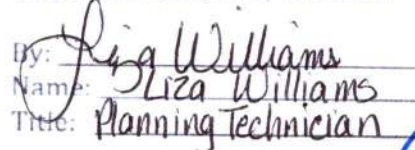 By: Liza Williams
Name: Liza Williams
Title: Planning Technician